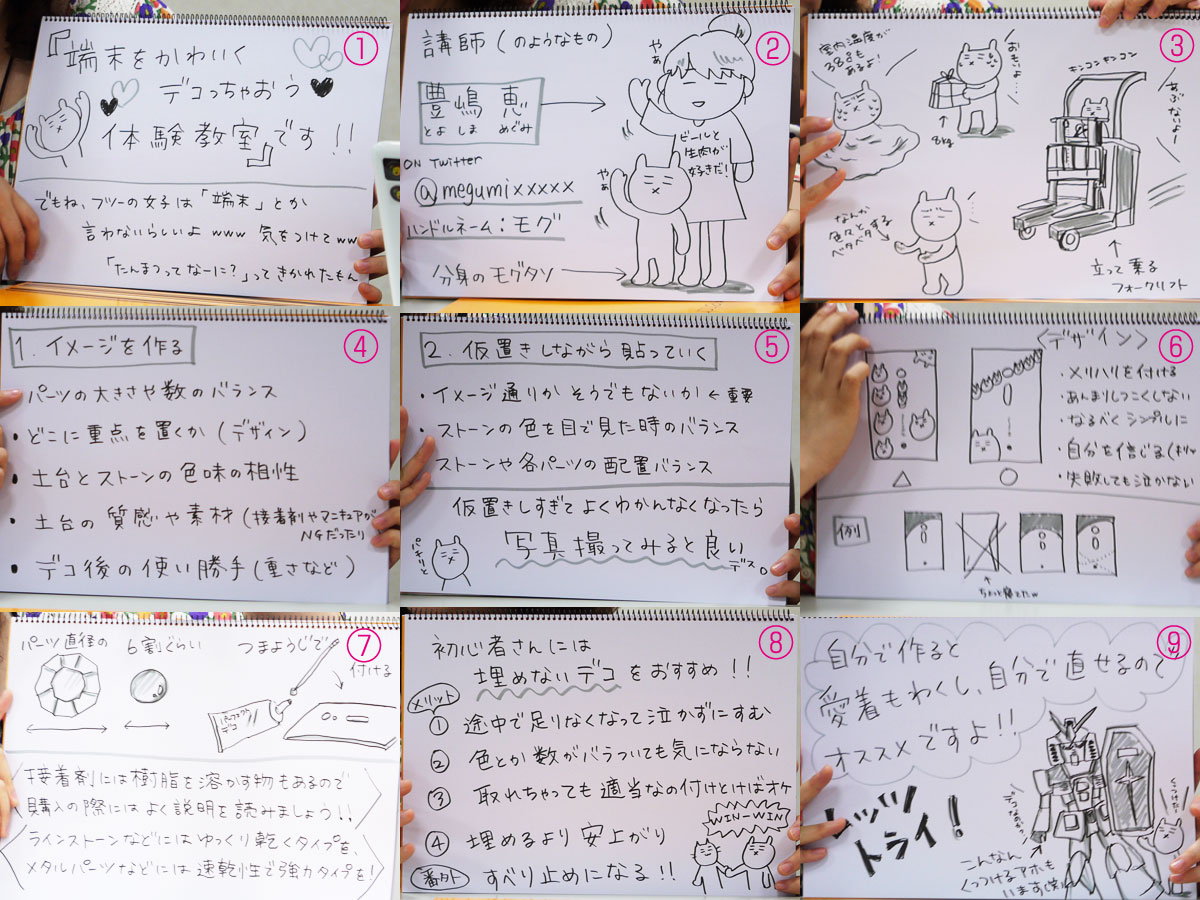 ①
『端末をかわいく
デコっちゃおう
体験教室』です!!
でもね、フツーの女子は「端末」とか
言わないらしいよwww 気をつけてww
「たんまつってなーに?」ってきかれたもん
②
講師(のようなもの)
やぁ
豊嶋 恵
とよ しま めぐみ
ビールと
生肉が
好きだ!
ON Twitter
@megumixxxxx
やぁ
ハンドルネーム:モグ
分身のモグタソ
③
室内温度が
38℃も
あるよ!
おもいよ…
8kg
キンコンキンコン
あぶないよ
なんか
色々とする
ベタベタ
立って乗る
フォークリフト
④
1.イメージを作る
・パーツの大きさや数のバランス
・どこに重点を置くか(デザイン)
・土台とストーンの色味の相性
・土台の質感や素材(接着剤やマニキュアが
NGだったり
・デコ後の使い勝手(重さなど)
⑤
2.仮置きしながら貼っていく
・イメージ通りかそうでもないか←重要
・ストーンの色を目で見た時のバランス
・ストーンや各パーツの配置バランス
仮置きしすぎてよくわかんなくなったら
パチリと
写真撮ってみると良い
デス。
⑥
<デザイン>
・メリハリを付ける
・あんまりしつこくしない
・なるべくシンプルに
・自分を信じる
・失敗しても泣かない
△ ○
例
⑦
パーツ直径の 6割ぐらい
つまようじで
付ける
デコ
接着剤には樹脂を溶かす物もあるので
購入の際にはよく説明を読みましょう!!
ラインストーンなどにはゆっくり乾くタイプを、
メタルパーツなどには速乾性で強力タイプを!
⑧
初心者さんには
埋めないデコをおすすめ!!
メリット
① 途中で足りなくなって泣かずにすむ
② 色とか数がバラついても気にならない
③ 取れちゃっても適当なの付けとけばオケ
WIN-WIN
④ 埋めるより安上がり
番外 すべり止めになる!!
⑨
自分で作ると
愛着もわくし、自分で直せるので
オススメですよ!!
レッツ
トライ!
こんなん
くっつけるアホも
います(笑)